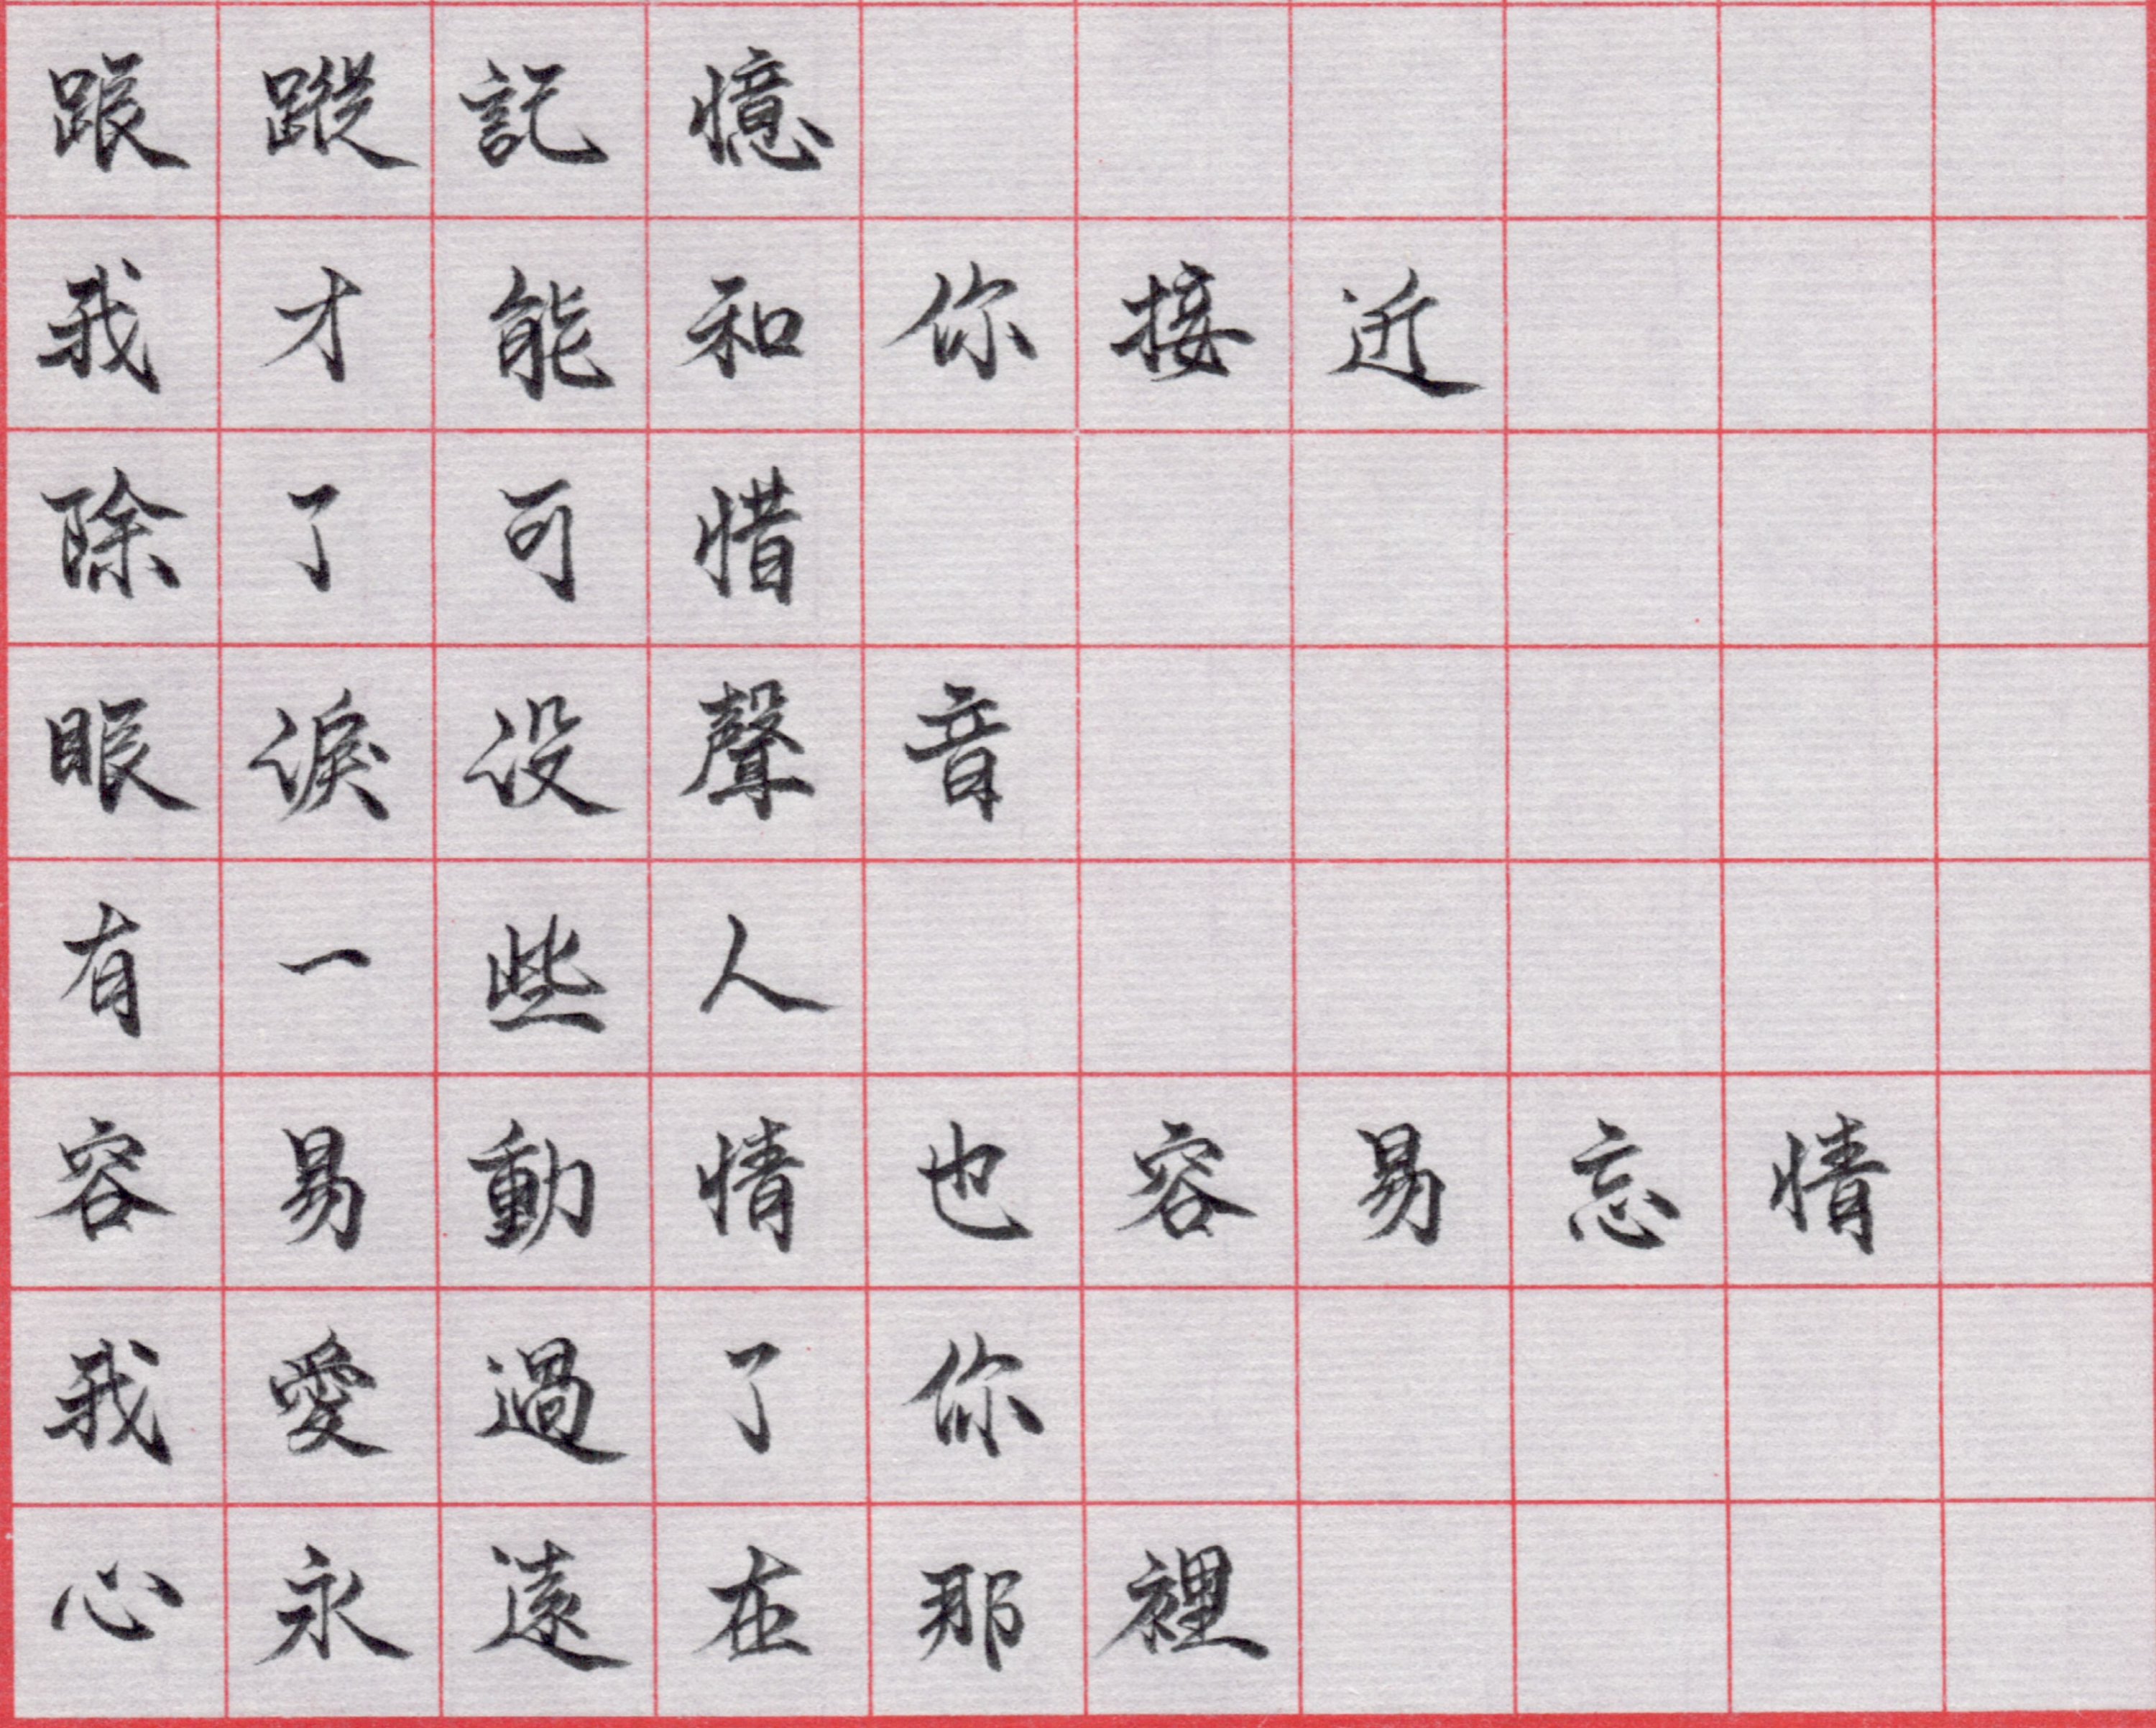 跟蹤記憶
我才能和你接近
除了可惜
眼淚没聲音
有一些人
容易動情也容易忘情
我愛過了你
心永遠在那裡